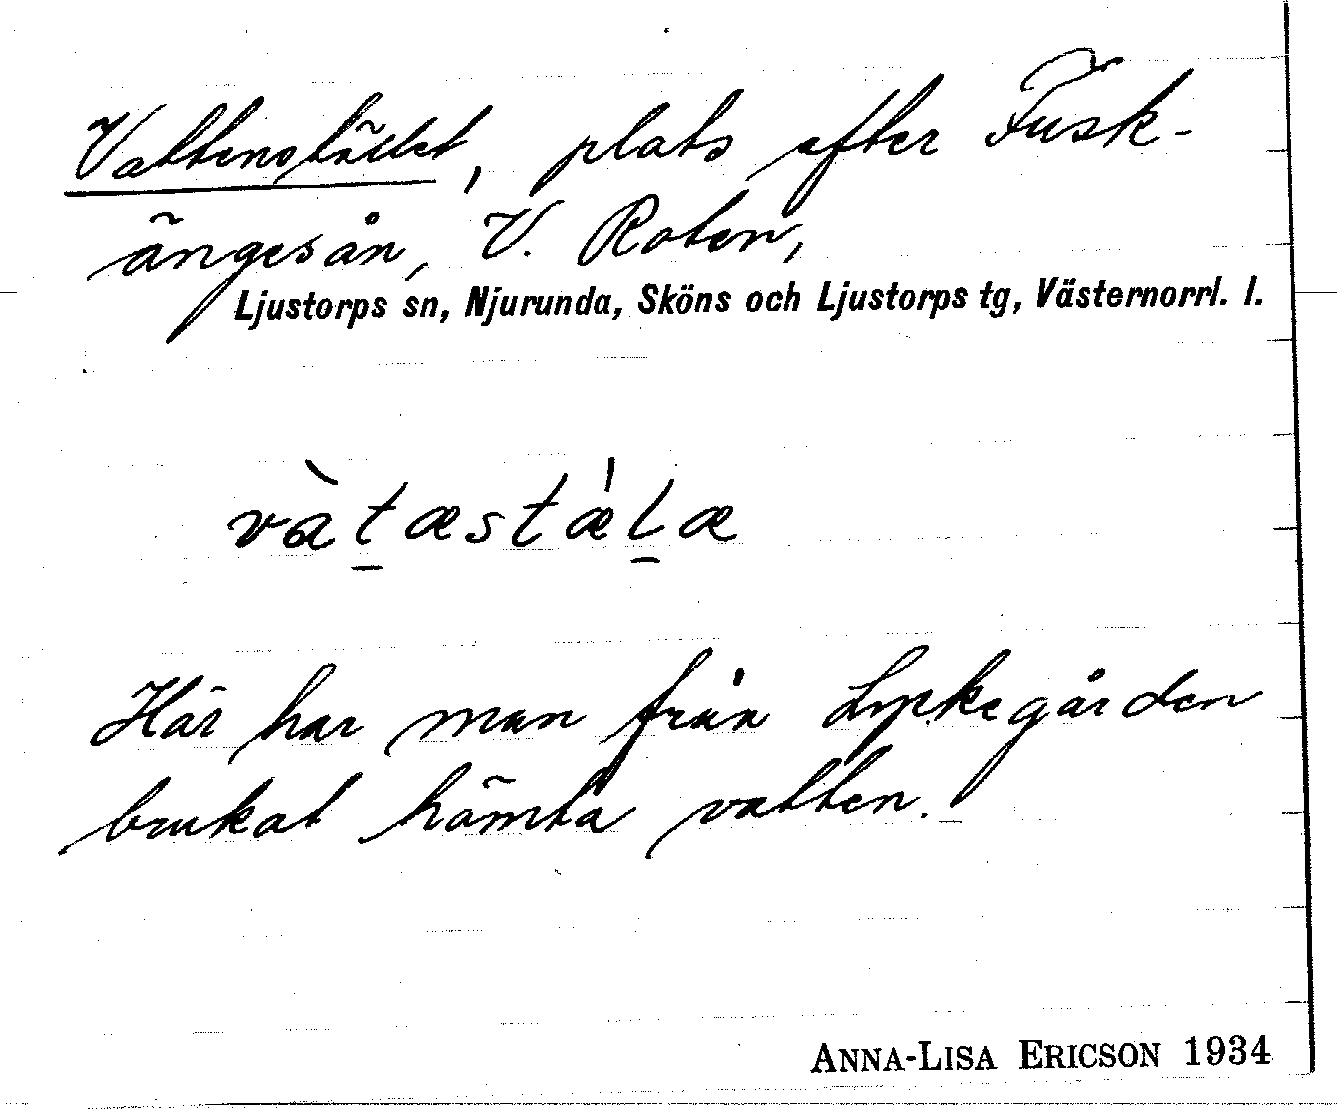 Vattenstället, plats efter Fusk-
ängesån, V. Roten,
Ljustorps sn, Njurunda, Sköns och Ljustorps tg, Västernorrl. l.
vàt̲æstæ̍l̲æ
Här har man från Lyckegården
brukat hämta vatten.
ANNA-LISA ERICSON 1934